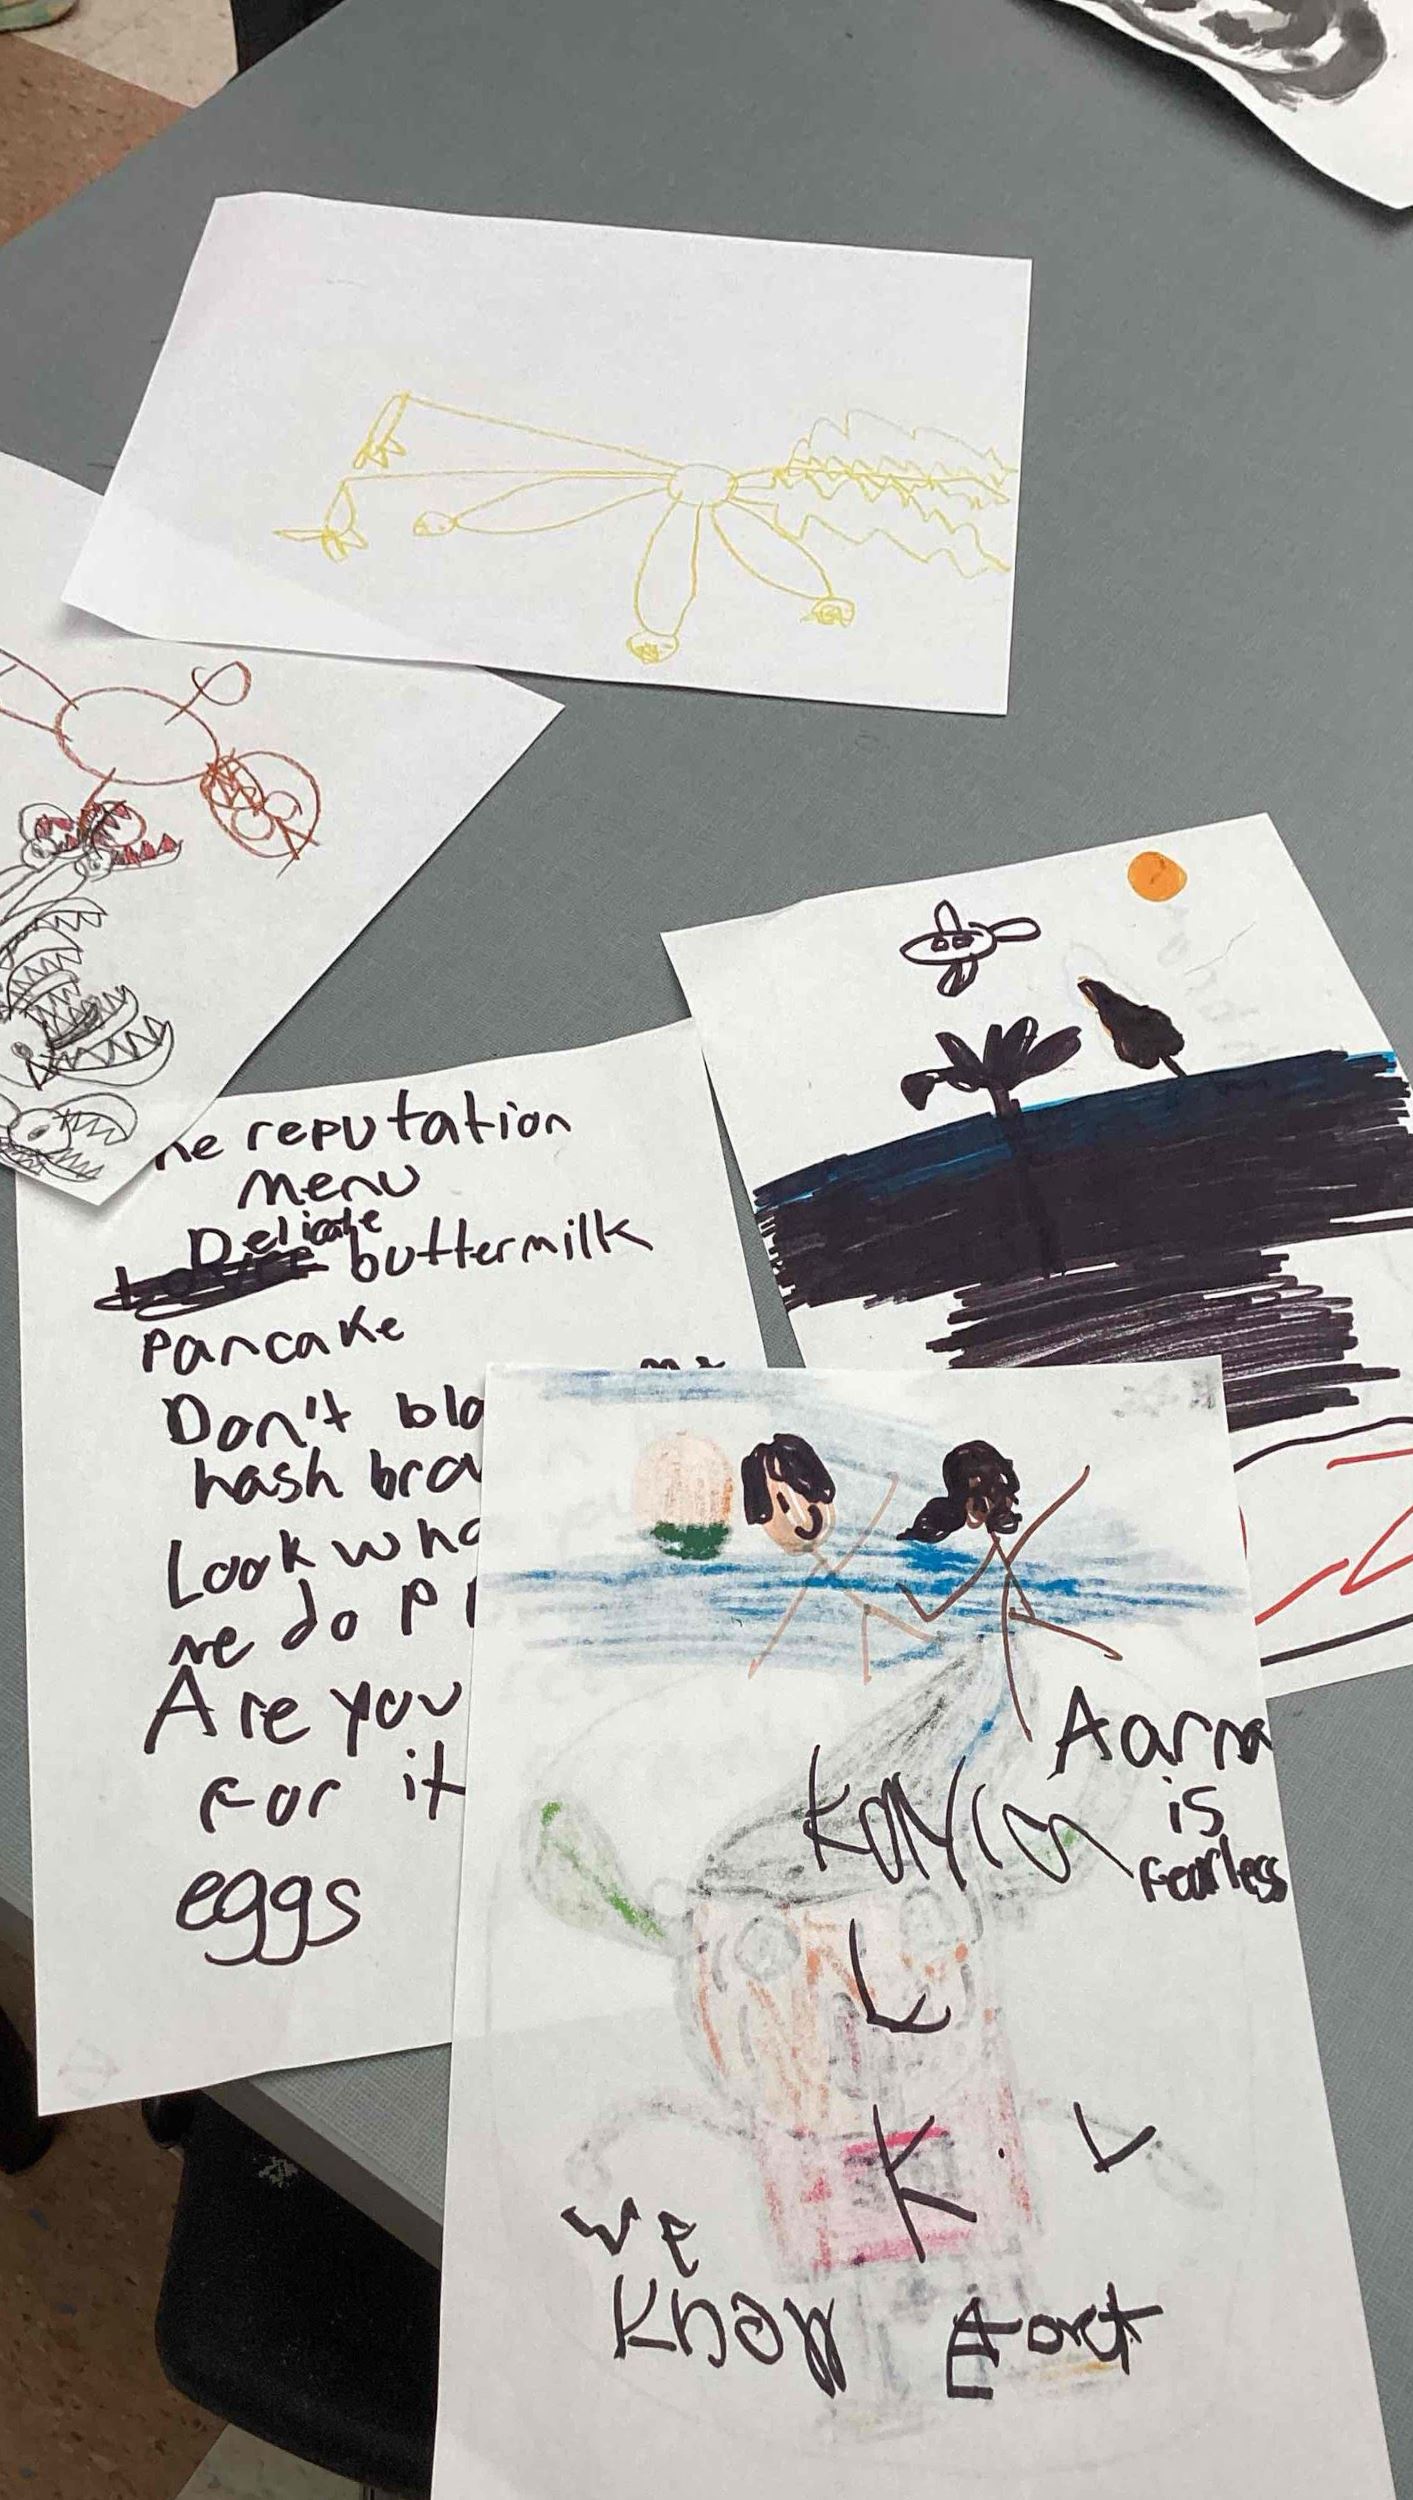 he reputation
menu
Delicate buttermilk
pancake
Don't bla
hash bro
Look wha
me do Pl
Are you
For it
eggs
Aarna
is
Fearless
L
K. L
we
Know